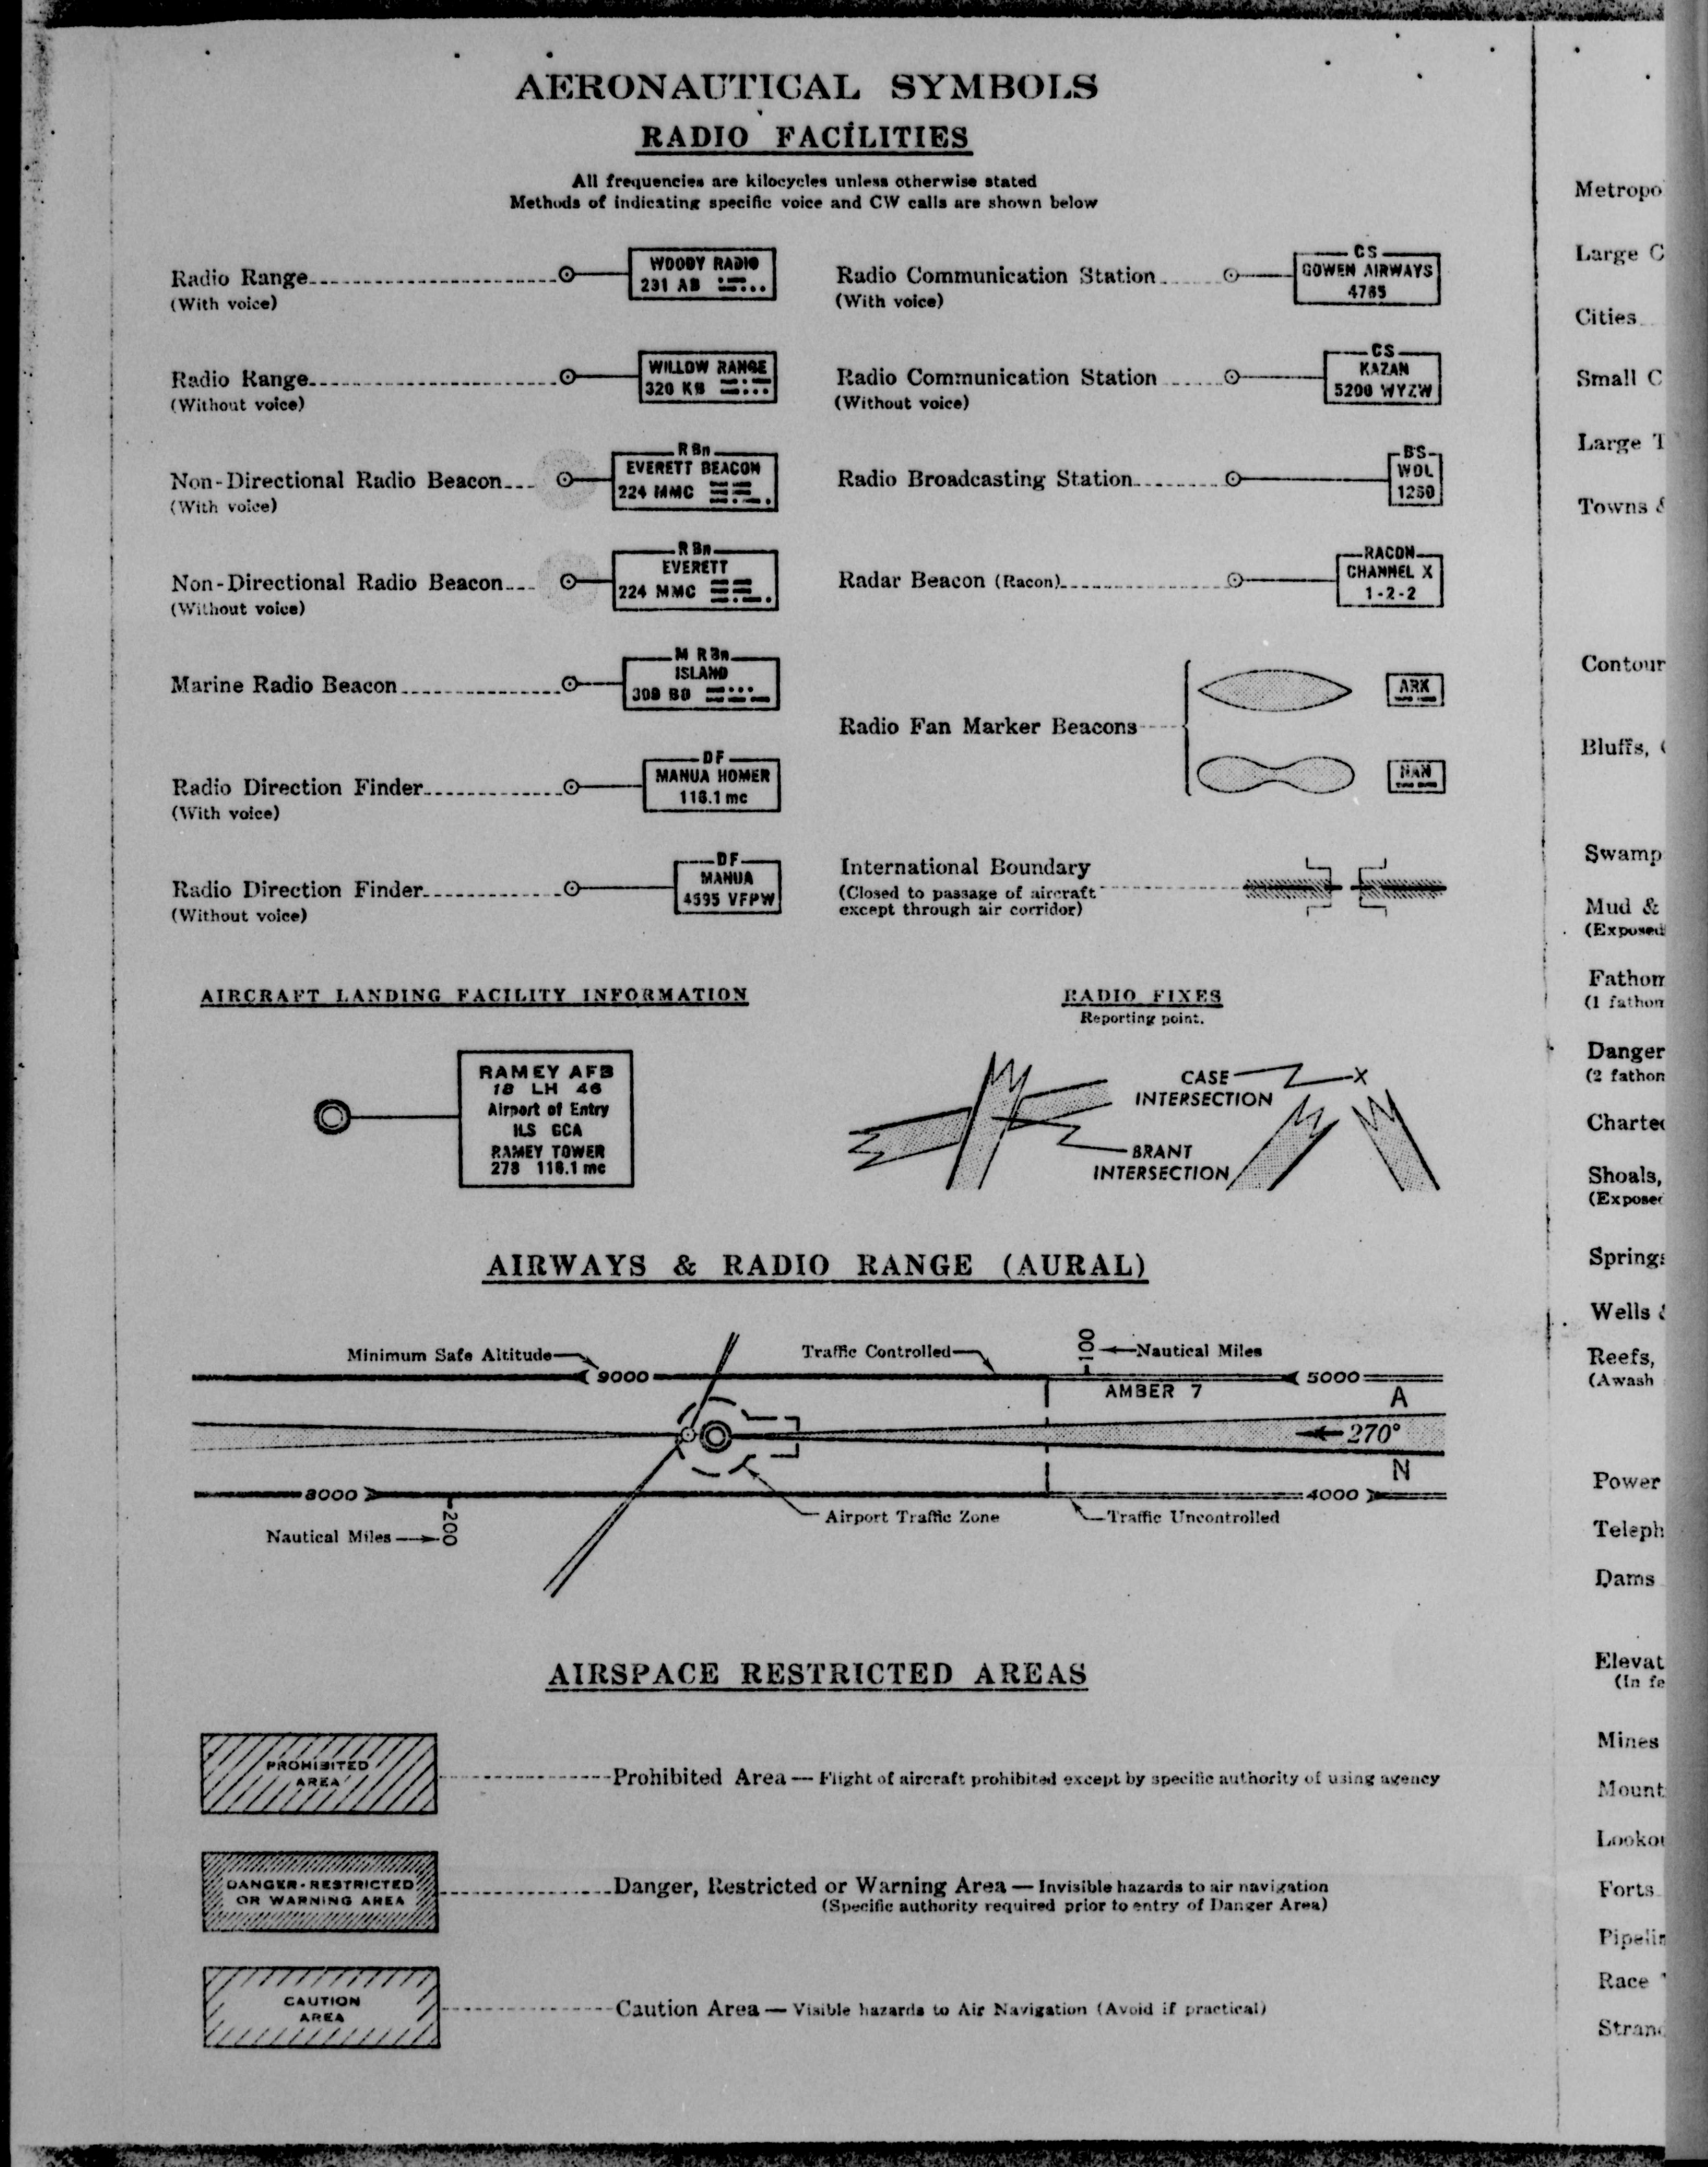 AERONAUTICAL SYMBOLS
RADIO FACILITIES
All frequencies are kilocycles unless otherwise stated
Methods of indicating specific voice and CW calls are shown below
Radio Range
(With voice)
WOODY RADIO
231 AB
Radio Range
(Without voice)
WILLOW RANGE
320 KB
Non-Directional Radio Beacon
(With voice)
R Bn
EVERETT BEACON
224 MMC
Non-Directional Radio Beacon
(Without voice)
R Bn
EVERETT
224 MMC
Marine Radio Beacon
M R Bn
ISLAND
309 BD
Radio Direction Finder
(With voice)
DF
MANUA HOMER
116.1 mc
Radio Direction Finder
(Without voice)
DF
MANUA
4595 VFPW
Radio Communication Station
(With voice)
CS
GOWEN AIRWAYS
4765
Radio Communication Station
(Without voice)
CS
KAZAN
5200 WYZW
Radio Broadcasting Station
BS
WOL
1260
Radar Beacon (Racon)
RACON
CHANNEL X
1-2-2
Radio Fan Marker Beacons
ARK
NAN
International Boundary
(Closed to passage of aircraft
except through air corridor)
AIRCRAFT LANDING FACILITY INFORMATION
RAMEY AFB
18 LH 46
Airport of Entry
ILS GCA
RAMEY TOWER
278 116.1 mc
RADIO FIXES
Reporting point.
CASE
INTERSECTION
X
BRANT
INTERSECTION
AIRWAYS & RADIO RANGE (AURAL)
Minimum Safe Altitude
9000
Traffic Controlled
100
Nautical Miles
AMBER 7
5000
A
270°
N
8000
4000
Nautical Miles
200
Airport Traffic Zone
Traffic Uncontrolled
AIRSPACE RESTRICTED AREAS
PROHIBITED
AREA
Prohibited Area — Flight of aircraft prohibited except by specific authority of using agency
DANGER-RESTRICTED
OR WARNING AREA
Danger, Restricted or Warning Area — Invisible hazards to air navigation
(Specific authority required prior to entry of Danger Area)
CAUTION
AREA
Caution Area — Visible hazards to Air Navigation (Avoid if practical)
Metropo
Large C
Cities
Small C
Large T
Towns &
Contour
Bluffs,
Swamp
Mud &
(Exposed
Fathom
(1 fathom
Danger
(2 fathom
Charted
Shoals,
(Exposed
Springs
Wells
Reefs,
(Awash
Power
Teleph
Dams
Elevat
(In fe
Mines
Mount
Lookou
Forts
Pipelin
Race
Strand